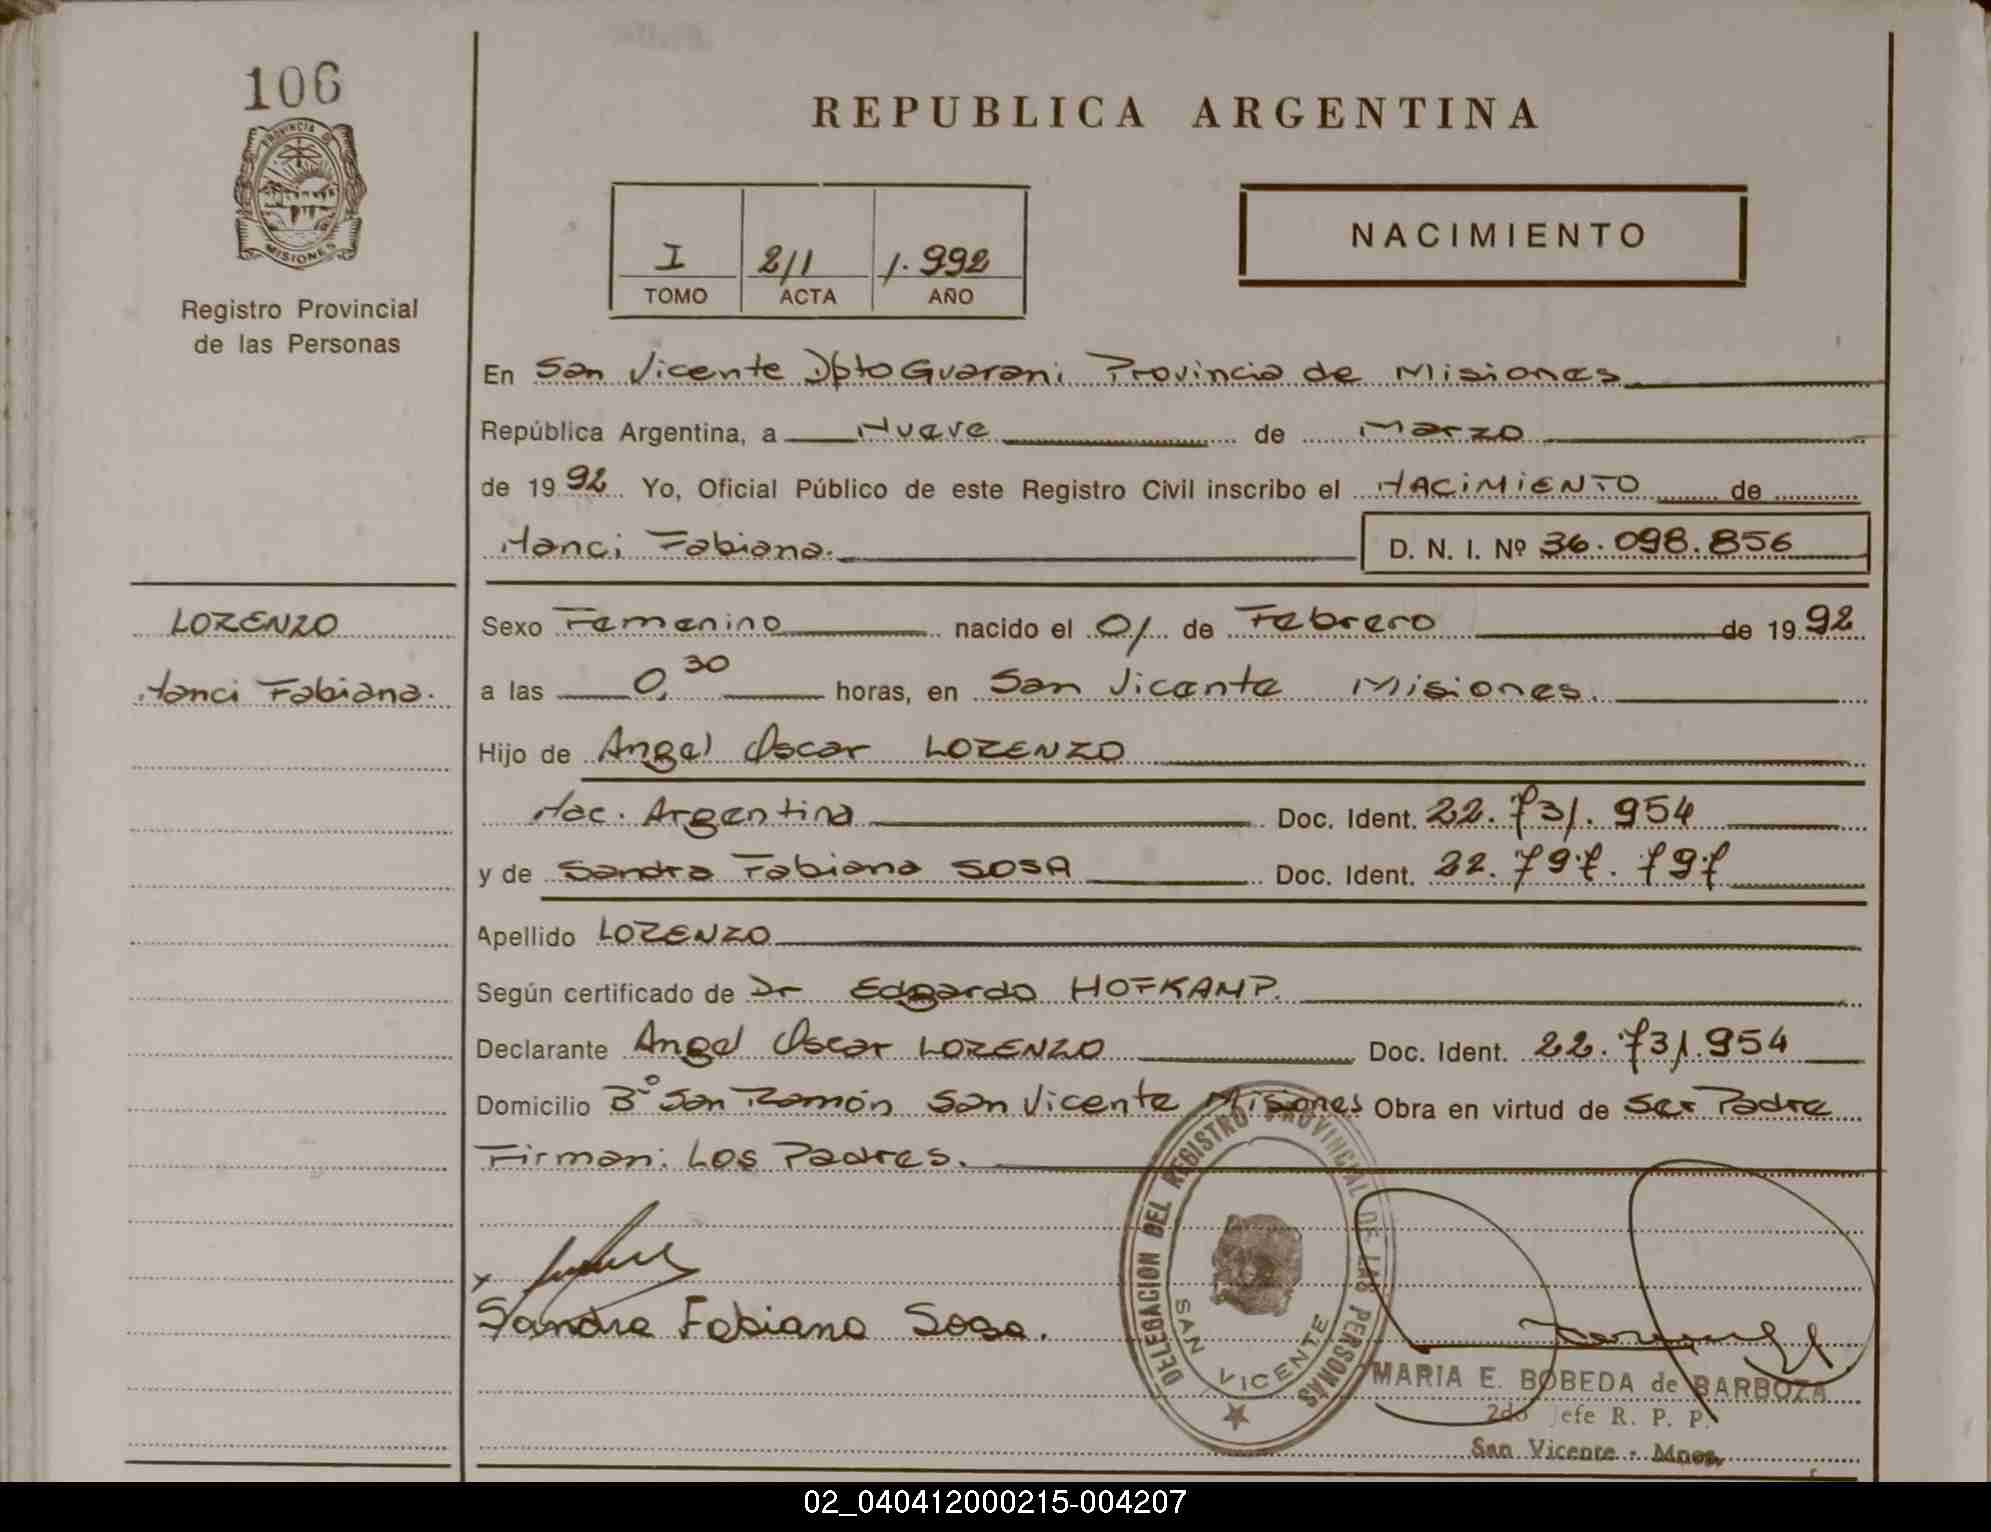 106
PROVINCIA DE
MISIONES
Registro Provincial
de las Personas
REPUBLICA ARGENTINA
I 211 1.992
TOMO ACTA AÑO
NACIMIENTO
En San Vicente Dpto Guarani Provincia de Misiones
República Argentina, a Nueve de Marzo
de 1992 Yo, Oficial Público de este Registro Civil inscribo el NACIMIENTO de
Nanci Fabiana. D. N. I. Nº 36.098.856
LORENZO
Nanci Fabiana.
Sexo Femenino nacido el 01 de Febrero de 1992
a las 0,30 horas, en San Vicente Misiones.
Hijo de Angel Oscar LORENZO
Nac. Argentina Doc. Ident. 22.731.954
y de Sandra Fabiana SOSA Doc. Ident. 22.797.797
Apellido LORENZO
Según certificado de Dr Edgardo HOFKAMP.
Declarante Angel Oscar LORENZO Doc. Ident. 22.731.954
Domicilio Bº San Ramón San Vicente Misiones Obra en virtud de Ser Padre
Firman: Los Padres.
x
Sandra Fabiana Sosa.
DELEGACION DEL REGISTRO PROVINCIAL DE LAS PERSONAS
SAN VICENTE
MARIA E. BOBEDA de BARBOZA
2do Jefe R. P. P.
San Vicente - Mnes.
02_040412000215-004207